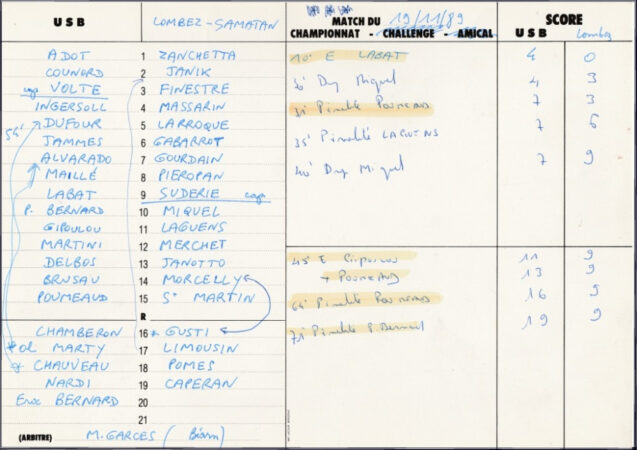 U S B LOMBEZ-SAMATAN
ADOT 1 ZANCHETTA
COUNORD 2 JANIK
cap VOLTE 3 FINESTRE
INGERSOLL 4 MASSARIN
54' DUFOUR 5 LARROQUE
JAMMES 6 GABARROT
ALVARADO 7 GOURDAIN
MAILLÉ 8 PIEROPAN
LABAT 9 SUDERIE cap
P. BERNARD 10 MIQUEL
GIPOULOU 11 LAGUENS
MARTINI 12 MERCHET
DELBOS 13 JANOTTO
BRUSAU 14 MORCELLY
POUMEAUD 15 St MARTIN
R
CHAMBERON 16 GUSTI
MARTY 17 LIMOUSIN
CHAUVEAU 18 POMES
NARDI 19 CAPERAN
Eric BERNARD 20
21
(ARBITRE) M. GARCES (Béarn)
MATCH DU 19/11/89
CHAMPIONNAT - CHALLENGE - AMICAL
SCORE
U S B Lombez
10' E LABAT 4 0
Dry Miquel 4 3
Pénalité POUMEAUD 7 3
35' Pénalité LAGUENS 7 6
40' Drop Miquel 7 9
45' E Gipoulou 11 9
+ POUMEAUD 13 9
64' Pénalité POUMEAUD 16 9
Pénalité P Bernard 19 9